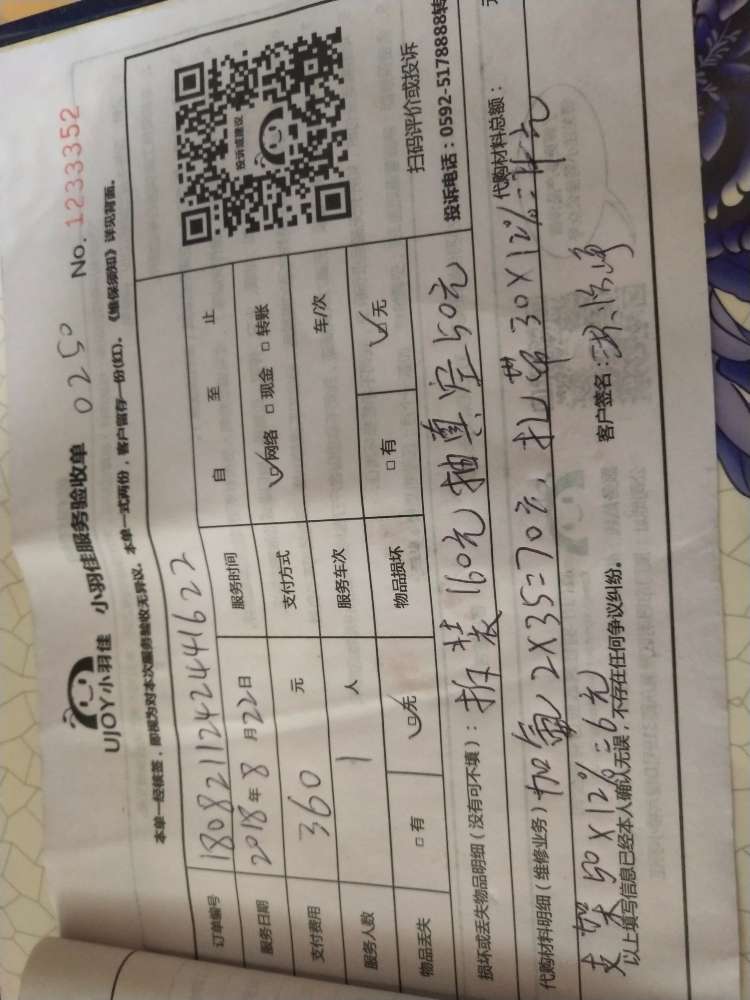 UJOY小羽佳 小羽佳服务验收单 0250 No. 1233352
本单一经核签，即视为对本次服务验收无异议。本单一式两份，客户留存一份(红)。《维保须知》详见背面。
订单编号 180821124244 1622
服务日期 2018年8月22日 服务时间 自 至 止
支付费用 360 元 支付方式 ☑网络 □现金 □转账
服务人数 1 人 服务车次 车/次
物品丢失 □有 ☑无 物品损坏 □有 ☑无
投诉或建议
扫码评价或投诉
投诉电话：0592-5178888转
损坏或丢失物品明细（没有可不填）：拆装160元 抽真空50元
代购材料明细（维修业务）加氟2X35=70元，扎带30X12%= 代购材料总额： 元
支架50X12%=6元
以上填写信息已经本人确认无误，不存在任何争议纠纷。 客户签名：